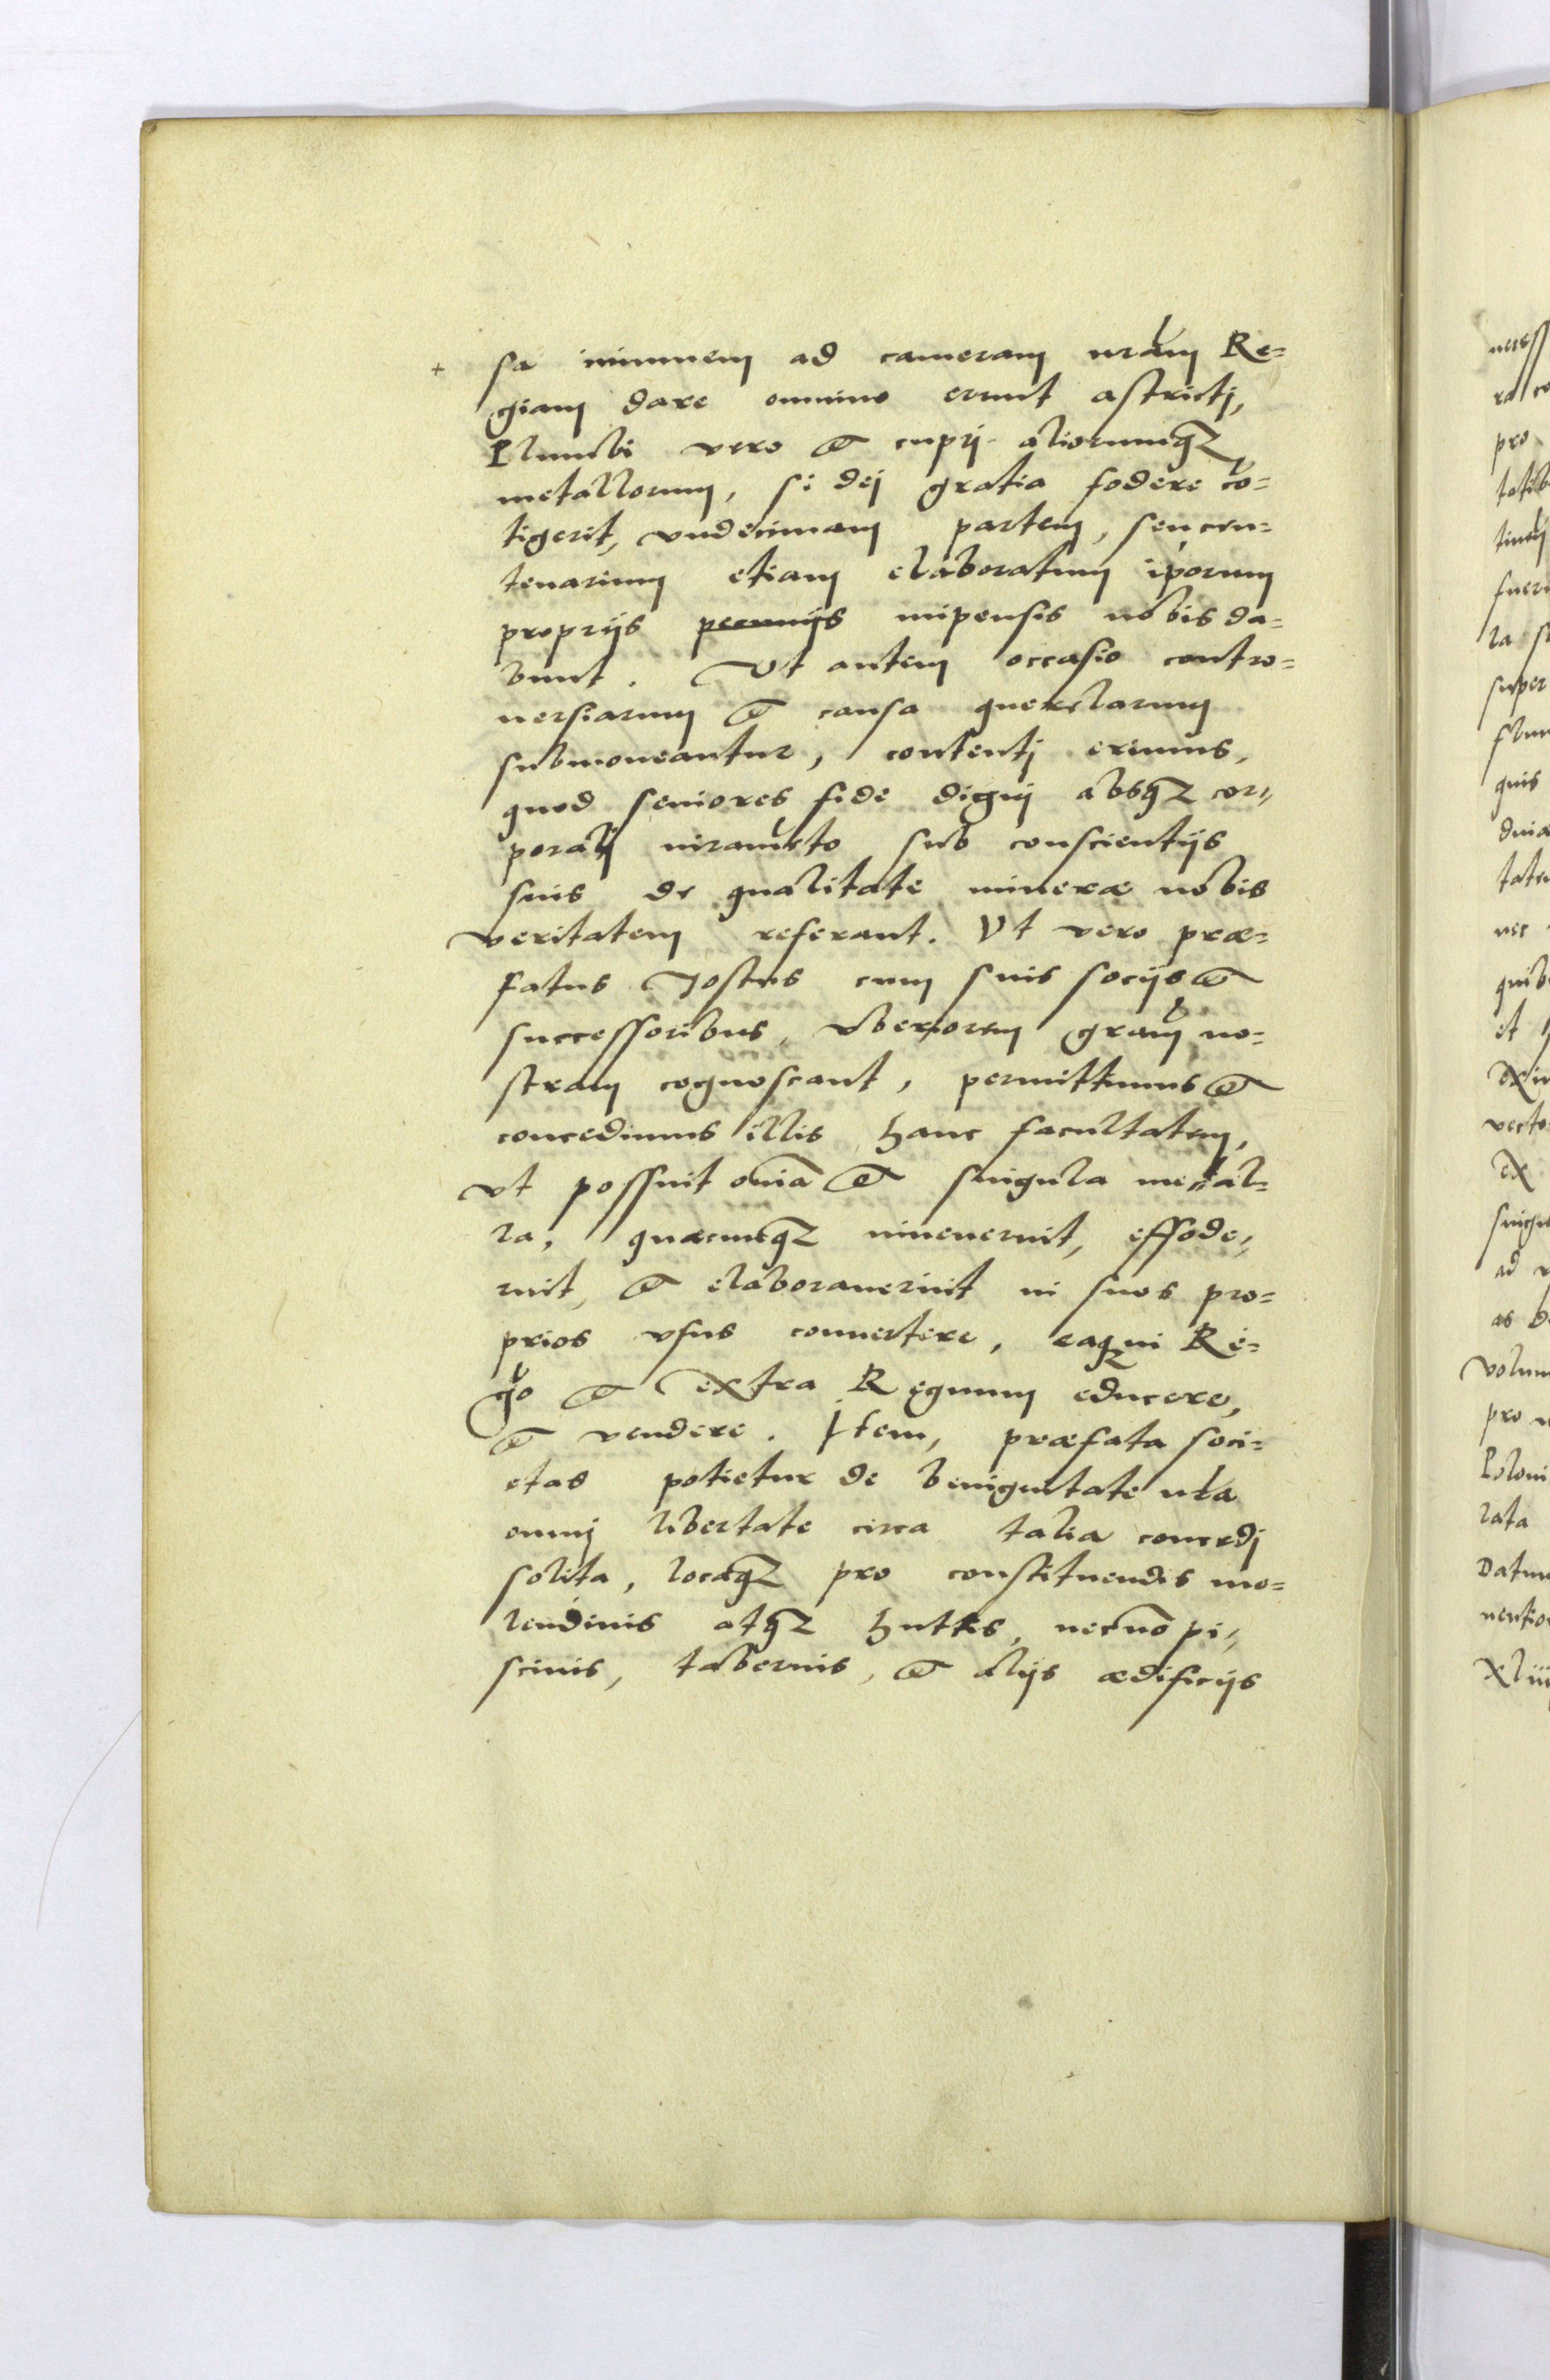 + sa inuniem ad cameram nram Re=
giam dare omnino erunt astrictj,
Plumbi vero et cuprj aliorumqz
metallorum, si dej gratia fodere cō=
tigerit, vndecimam partem, seu cen=
tenarium etiam elaboratum ip̄orum
proprijs pecunijs impensis nobis da=
bunt. Vt autem occasio contro=
uersiarum et causa querelarum
submoueantur, contentj erimus,
quod seniores fide dignj absqz cor=
poralj iuramēto sub conscientijs
suis de qualitate mineræ nobis
veritatem referant. Vt vero præ=
fatus Jostus cum suis socijs et
successoribus, vberiorem gram no=
stram cognoscant, permittimus et
concedimus illis hanc facultatem,
vt possint om̄ia et singula metal=
la, quæcunqz inuenerint, effode=
rint, et elaborauerint in suos pro=
prios vsus conuertere, eaqz in Re=
gō et extra Regnum educere,
et vendere. Item, præfata soci=
etas potietur de benignitate nr̄a
omnj libertate circa talia concedj
solita, locaqz pro constituendis mo=
lendinis atqz huttis, necnō pi=
scinis, tabernis, et alijs ædificijs
necess
ra co
pro
super
quis
tate
nec
quib
et
vecto
ex
ad
as
volum
pro
Poloni
lata
Datum
xliii